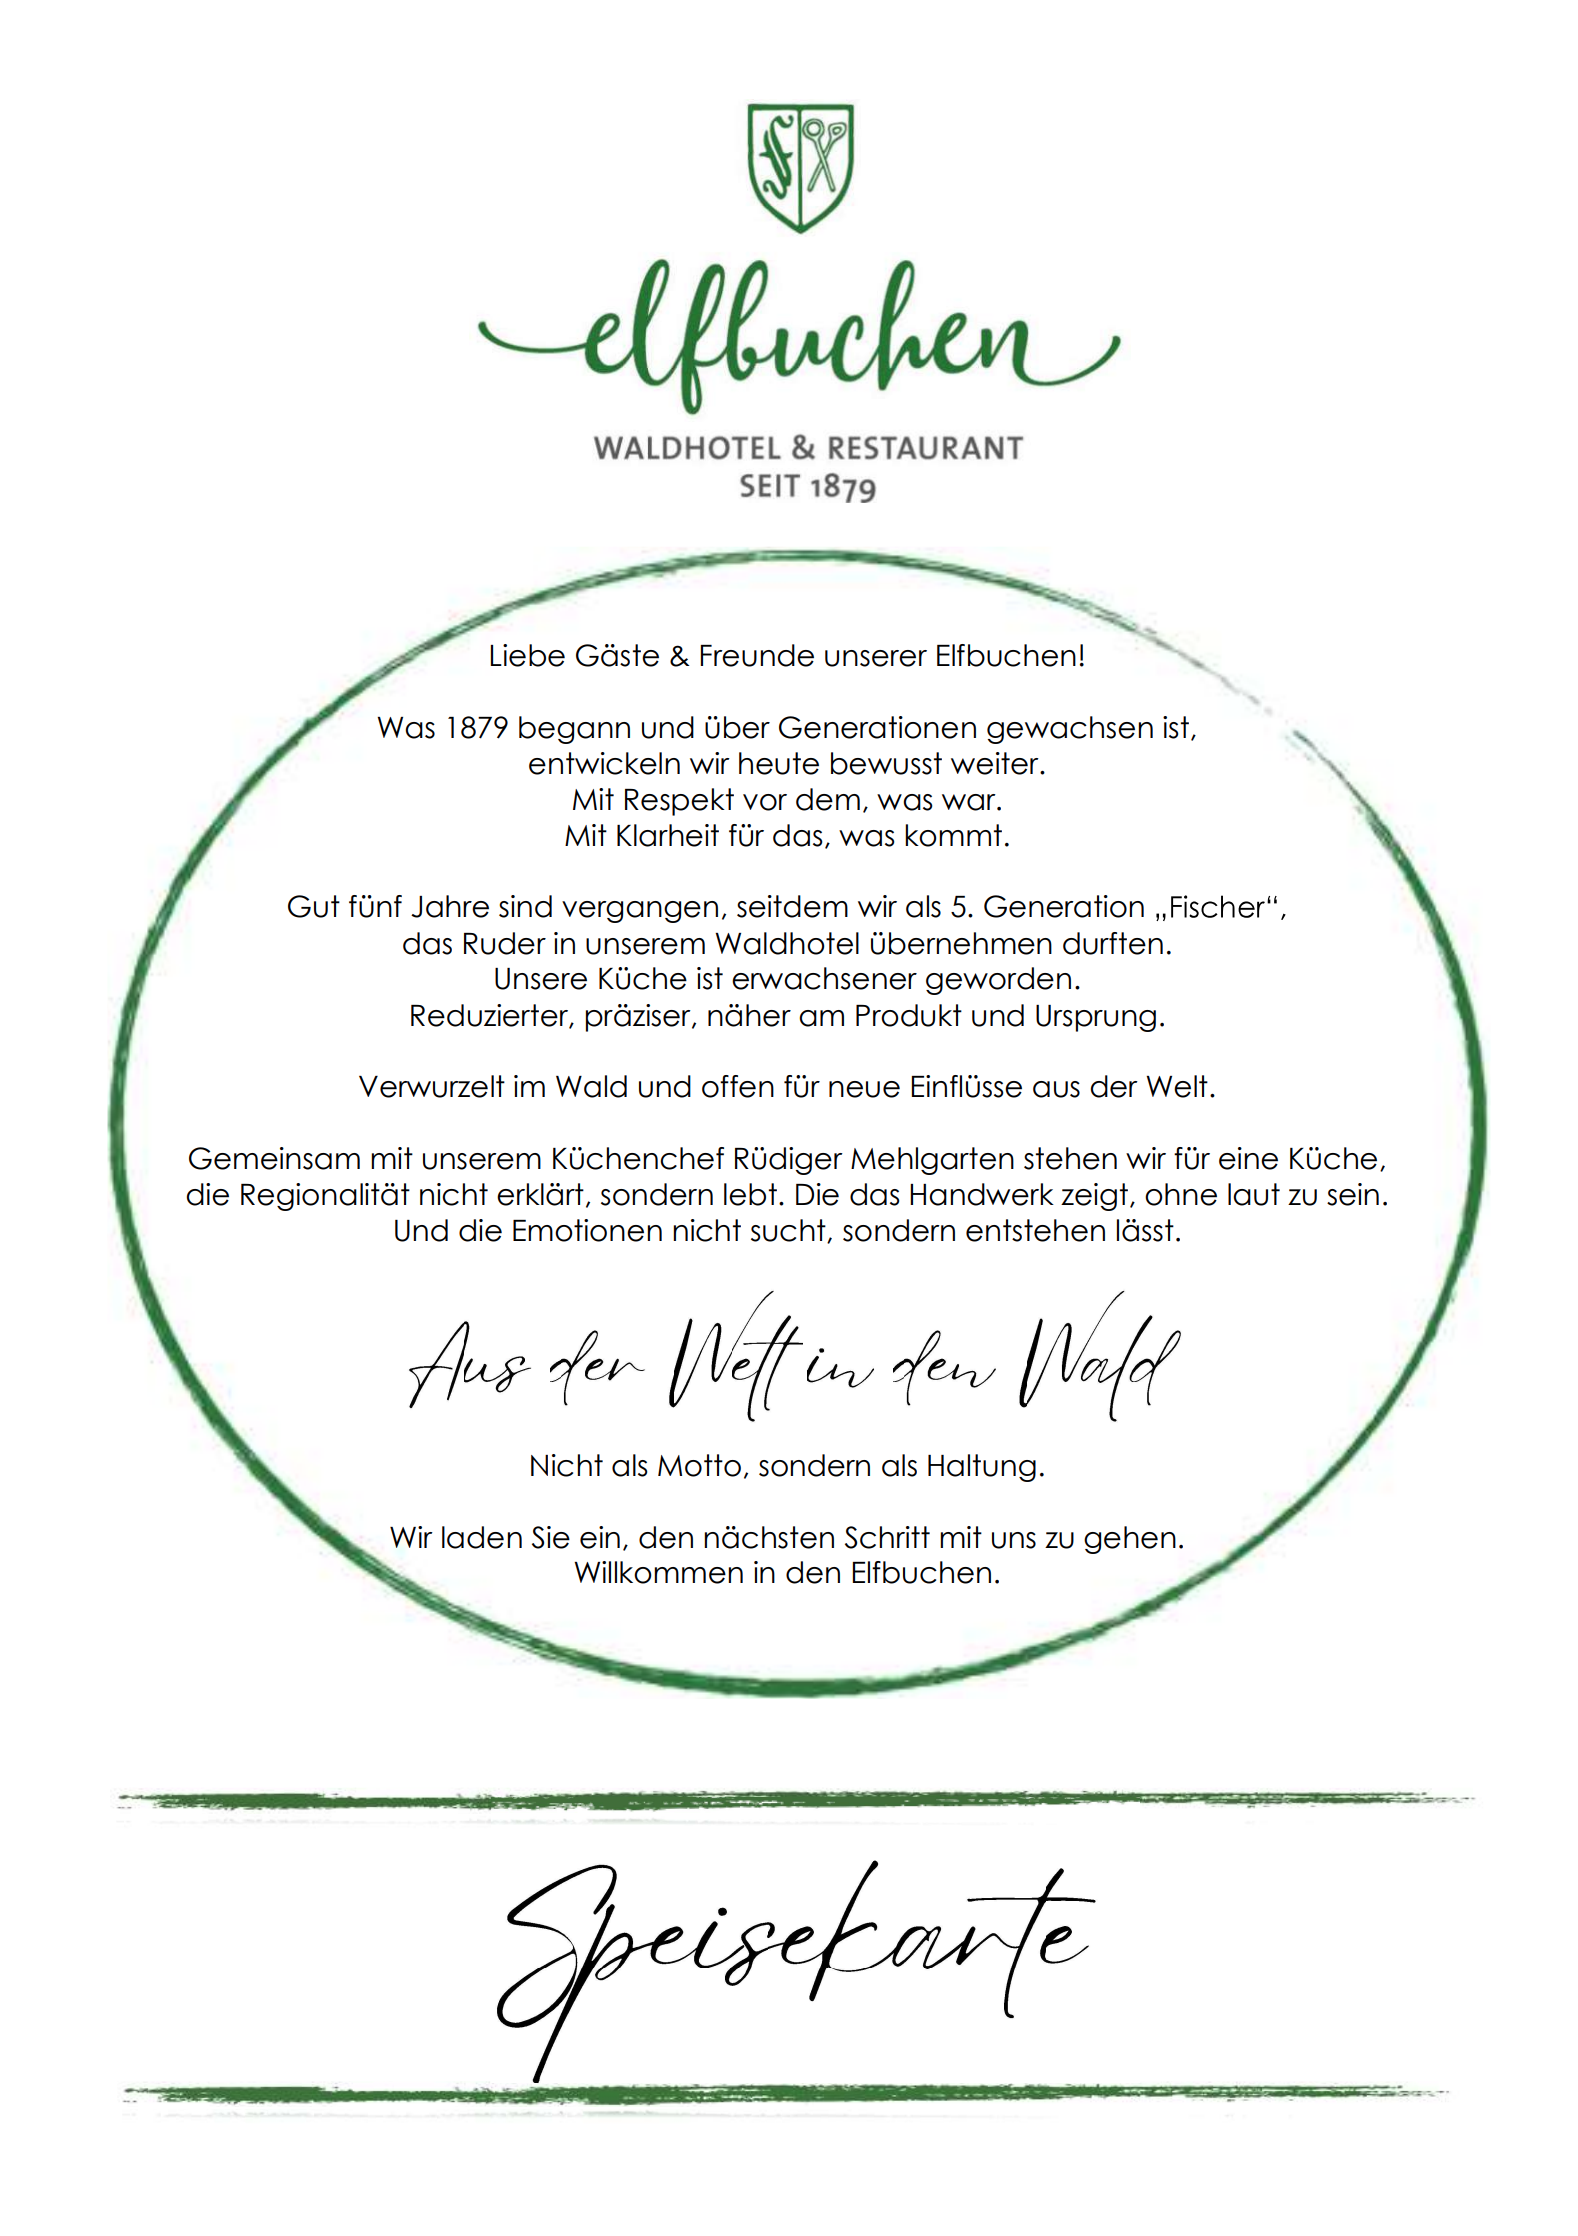 elfbuchen
WALDHOTEL & RESTAURANT
SEIT 1879
Liebe Gäste & Freunde unserer Elfbuchen!
Was 1879 begann und über Generationen gewachsen ist,
entwickeln wir heute bewusst weiter.
Mit Respekt vor dem, was war.
Mit Klarheit für das, was kommt.
Gut fünf Jahre sind vergangen, seitdem wir als 5. Generation „Fischer“,
das Ruder in unserem Waldhotel übernehmen durften.
Unsere Küche ist erwachsener geworden.
Reduzierter, präziser, näher am Produkt und Ursprung.
Verwurzelt im Wald und offen für neue Einflüsse aus der Welt.
Gemeinsam mit unserem Küchenchef Rüdiger Mehlgarten stehen wir für eine Küche,
die Regionalität nicht erklärt, sondern lebt. Die das Handwerk zeigt, ohne laut zu sein.
Und die Emotionen nicht sucht, sondern entstehen lässt.
Aus der Welt in den Wald
Nicht als Motto, sondern als Haltung.
Wir laden Sie ein, den nächsten Schritt mit uns zu gehen.
Willkommen in den Elfbuchen.
Speisekarte